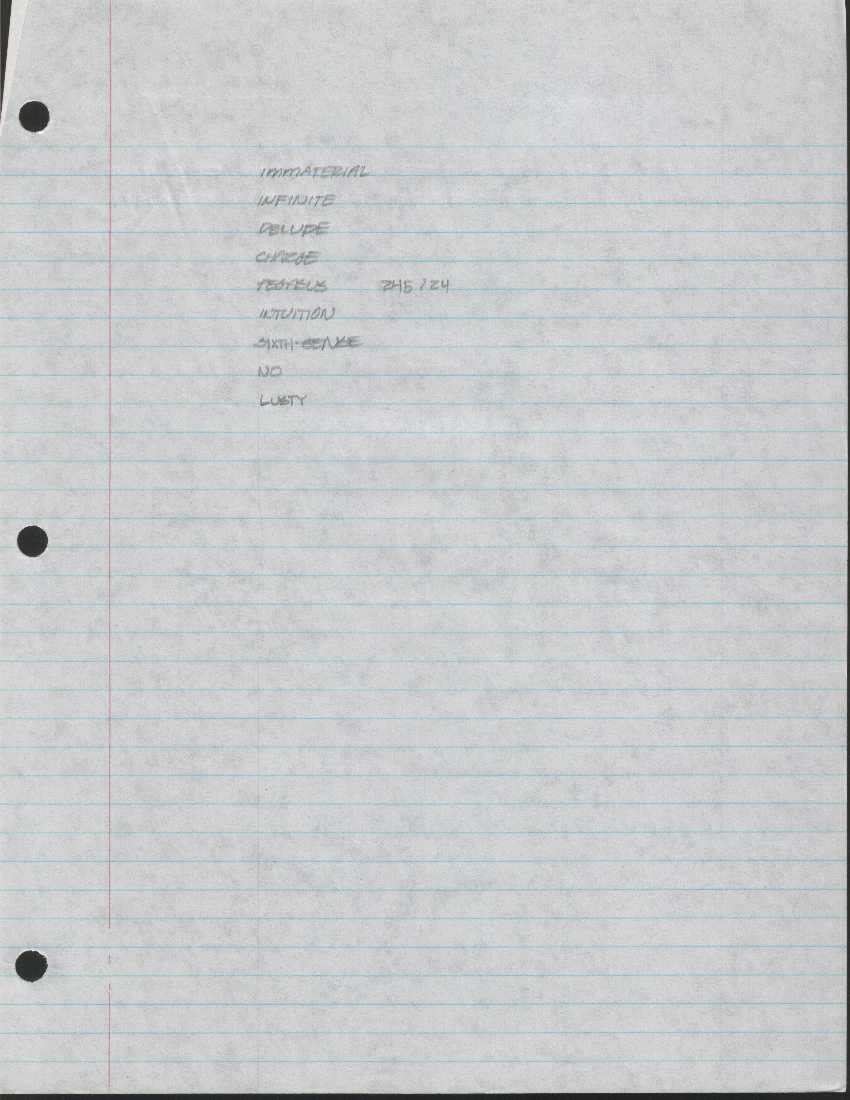 IMMATERIAL
INFINITE
DELUDE
CHARGE
PEGASUS 245 / 24
INTUITION
SIXTH-SENSE
NO
LUSTY